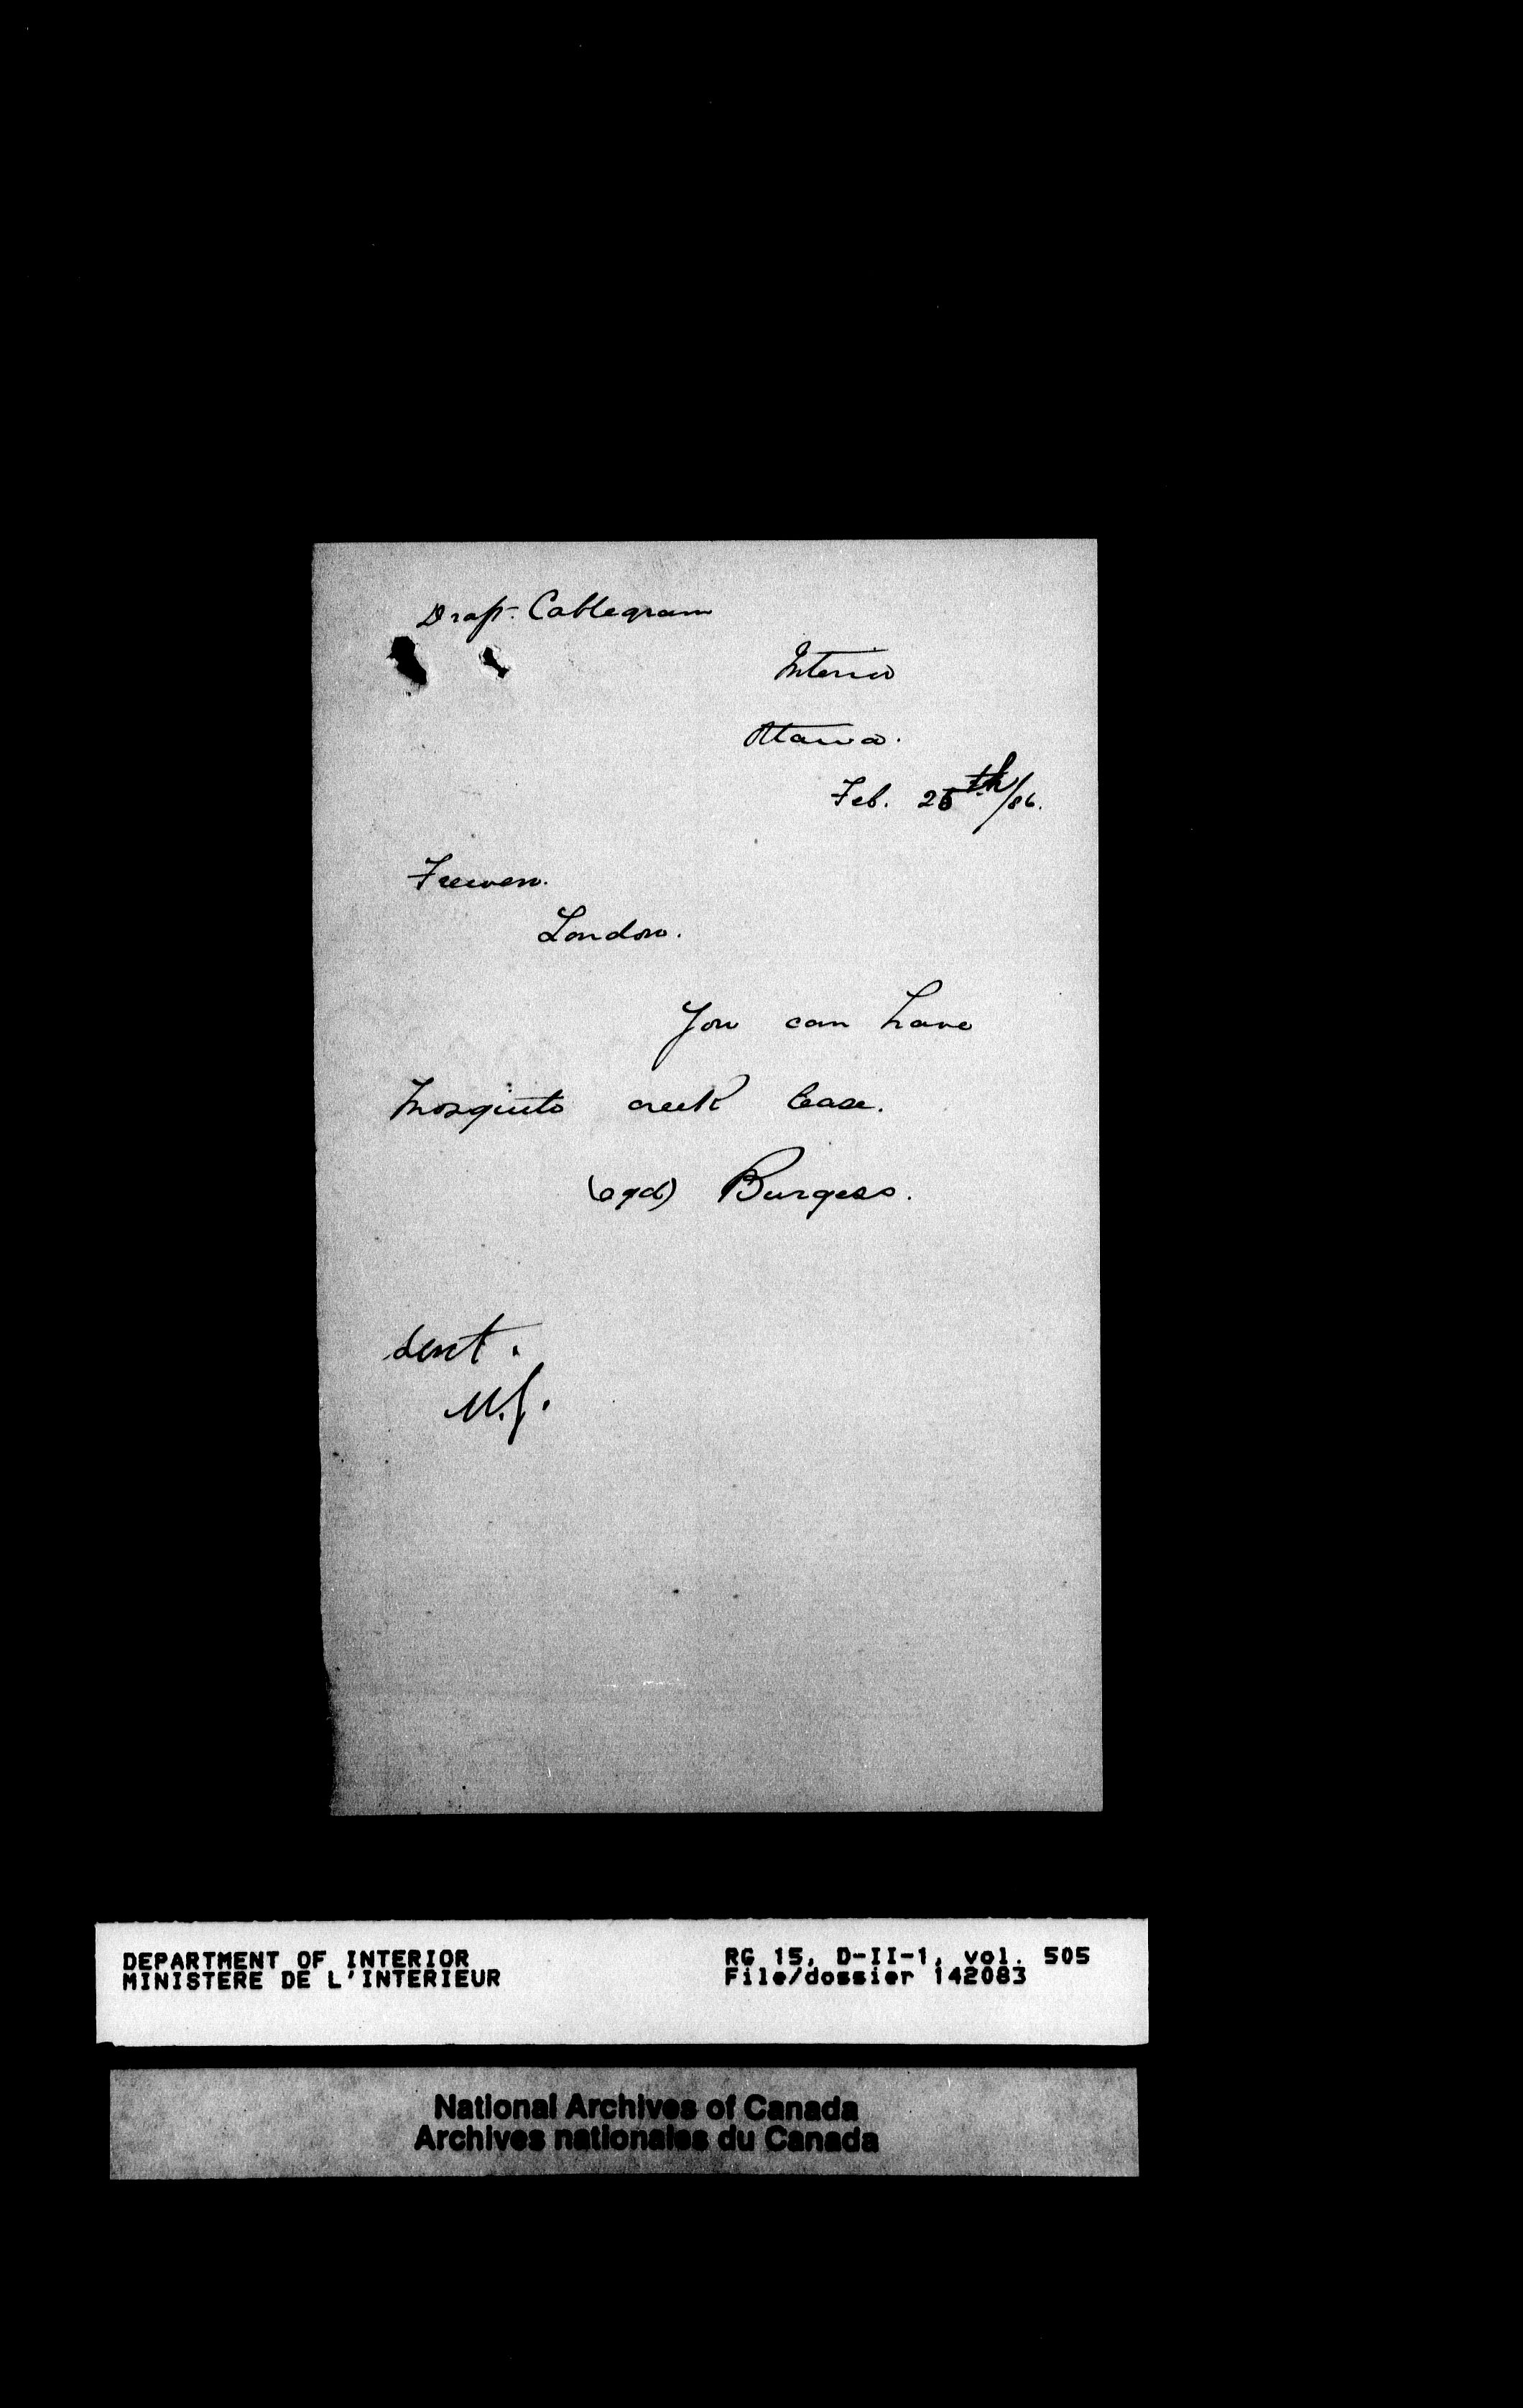 Draft Cablegram
Interior
Ottawa.
Feb. 25th/86.
Frewen.
London.
You can have
Mosquito creek lease.
(sgd) Burgess.
Sent.
DEPARTMENT OF INTERIOR
MINISTERE DE L'INTERIEUR
RG 15, D-II-1, vol. 505
File/dossier 142083
National Archives of Canada
Archives nationales du Canada